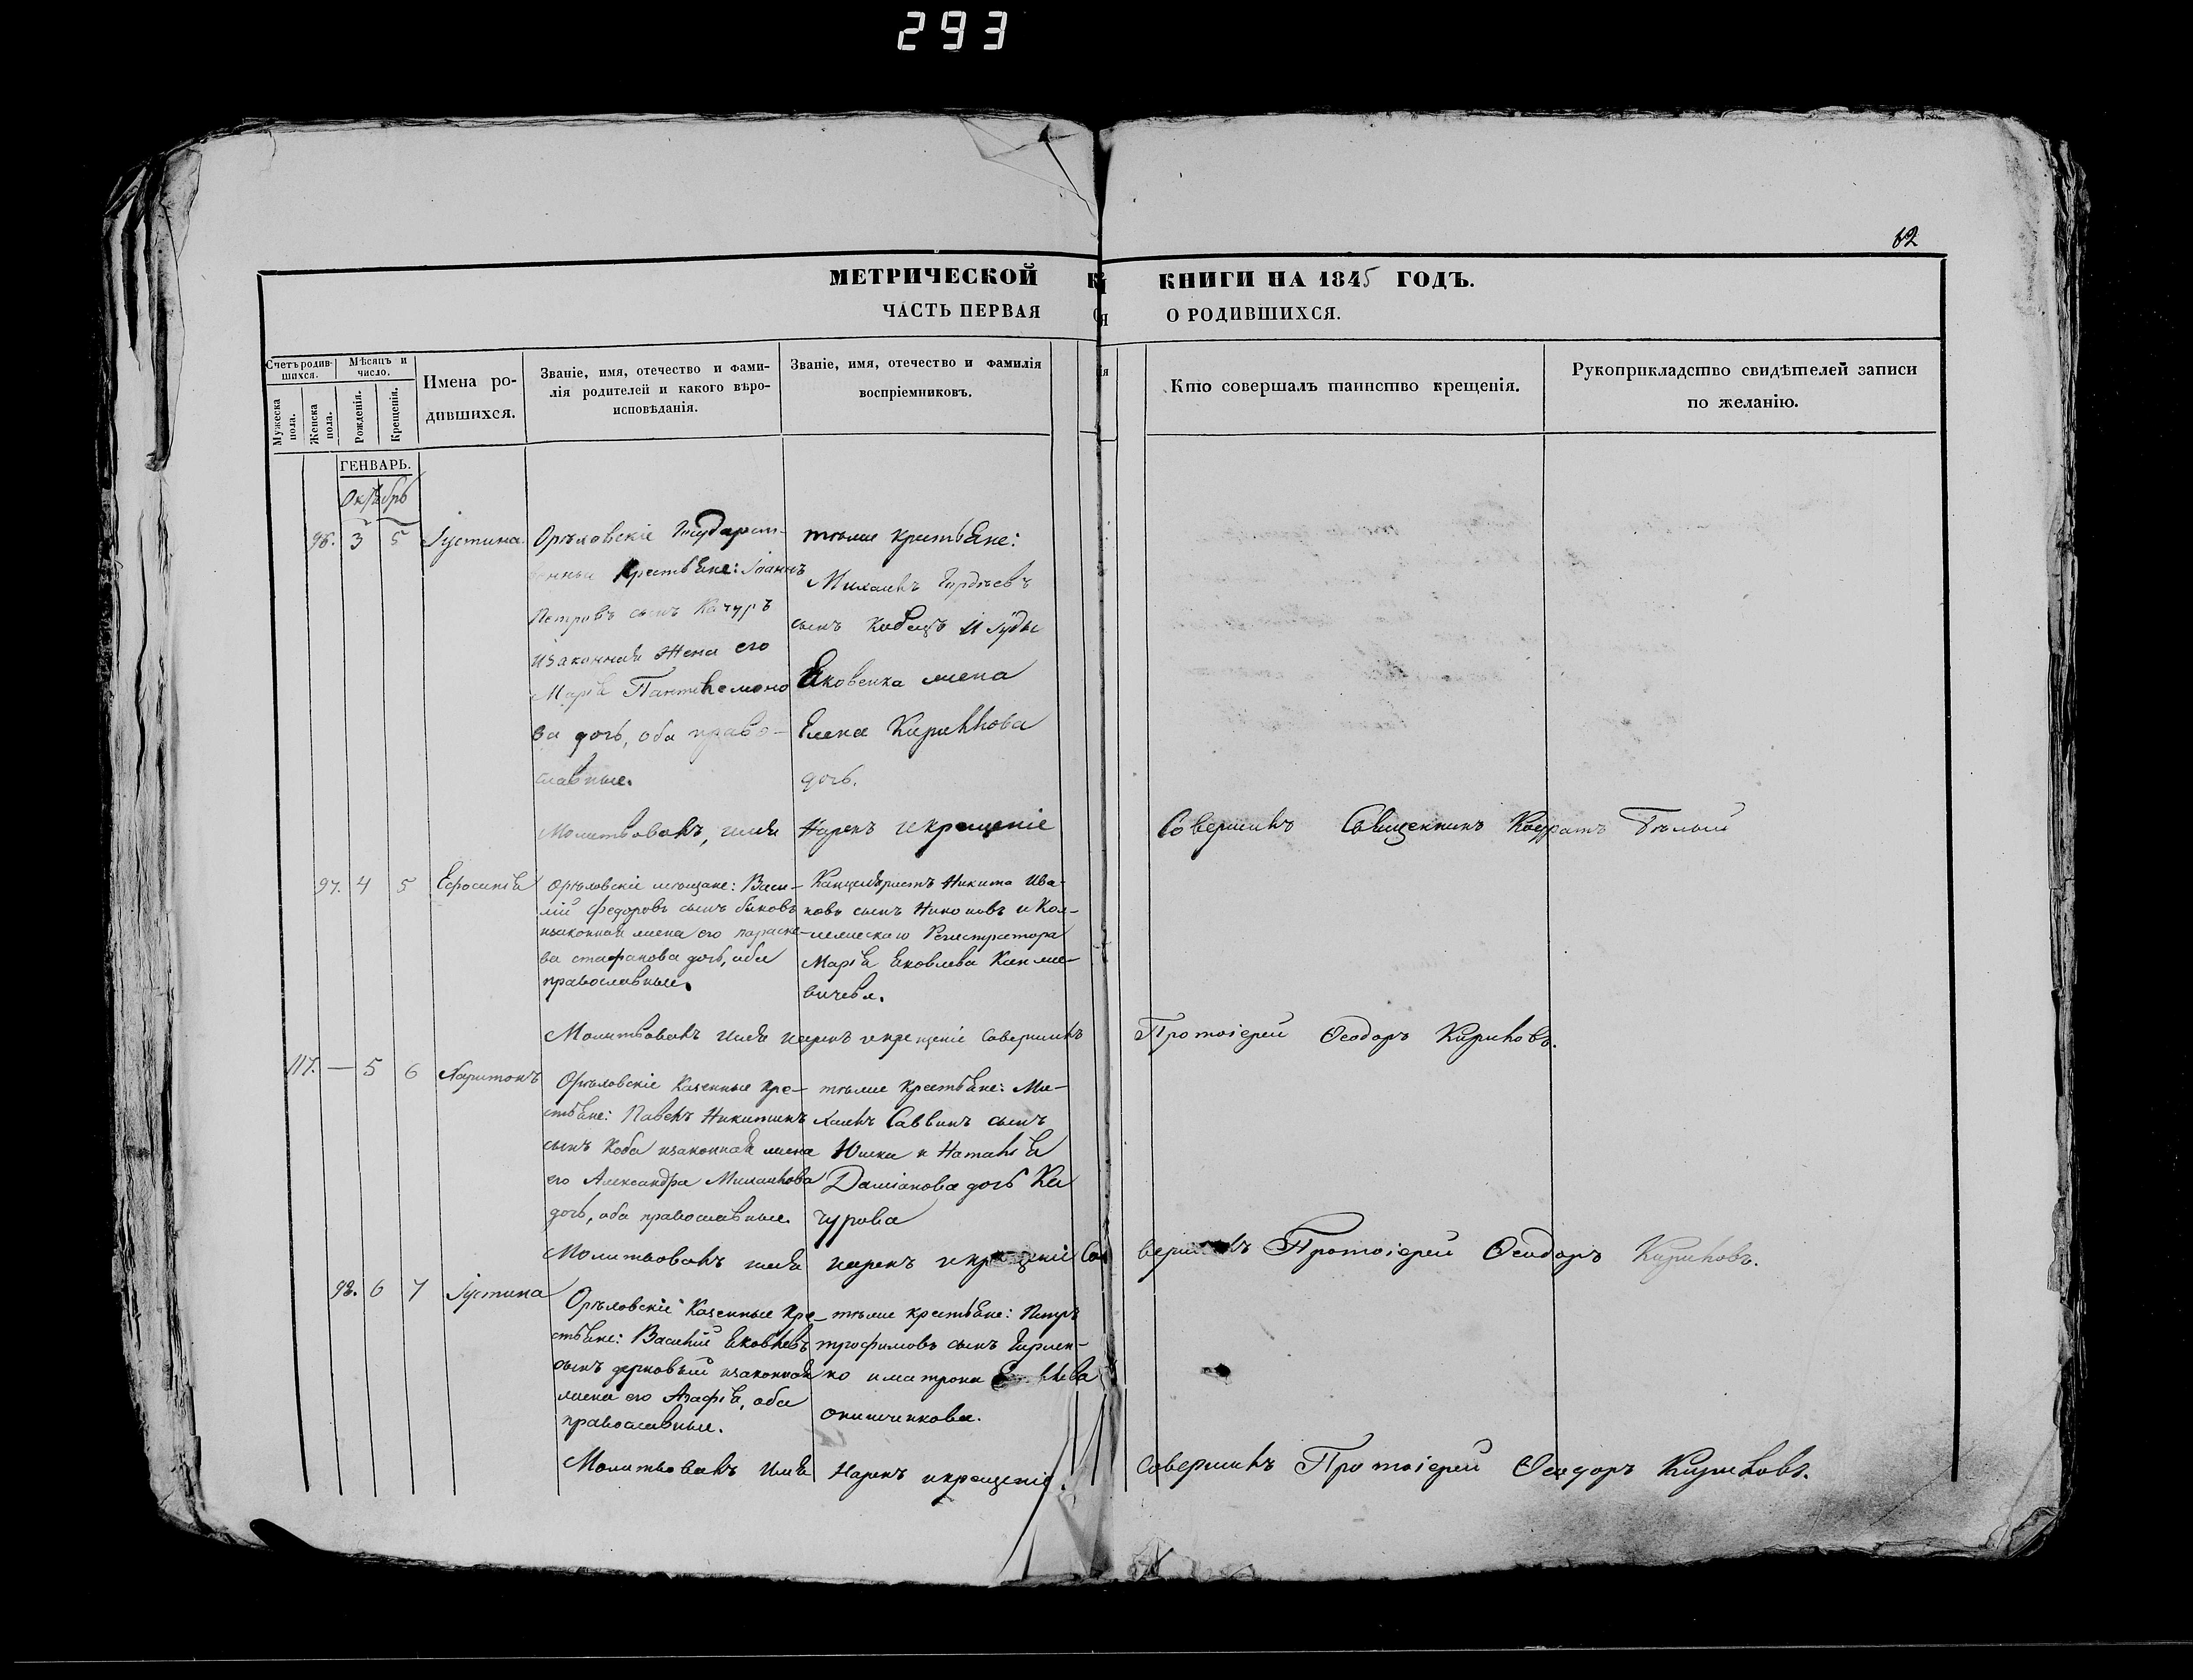 293
62
МЕТРИЧЕСКОЙ КНИГИ НА 1845 ГОДЪ.
ЧАСТЬ ПЕРВАЯ О РОДИВШИХСЯ.
Счетъ родившихся.
Мужеска пола.
Женска пола.
Мѣсяцъ и число.
Рожденія.
Крещенія.
Имена родившихся.
Званіе, имя, отечество и фами-
лія родителей и какого вѣро-
исповѣданія.
Званіе, имя, отечество и фамилія
воспріемниковъ.
Кто совершалъ таинство крещенія.
Рукоприкладство свидѣтелей записи
по желанію.
ГЕНВАРЬ.
Октябрь
96. 3 5 Іустина
Орѣховскіе Государст-
венныи крестьяне: Іоаннъ
Петровъ сынъ Качуръ
изаконная жена его
Марія Пантелеймоно
ва дочь, оба право-
славные.
тѣже крестьяне:
Михаилъ Гордѣевъ
сынъ и Іуды
Яковенка жена
Елена Кирилова
дочь.
Молитвовалъ, имя Нарекъ икрещеніе Совершилъ Священникъ Кодратъ Бѣлый
97. 4 5 Ефросинія
Орѣховскіе мѣщане: Васи-
лій Федоровъ сынъ Быковъ
изаконная жена его параске-
ва стефанова дочь, оба
православные.
Канцеляристъ Никита Ива-
новъ сынъ Никоновъ и Кол-
лежскаго Регистратора
Марія Яковлева
Молитвовалъ имя нарекъ икрещеніе Совершилъ Протоіерей Ѳеодоръ Кириловъ.
117. — 5 6 Харитонъ
Орѣховскіе Казенные кре-
стьяне: Павелъ Никитинъ
сынъ Коба изаконная жена
его Александра Михаилова
дочь, оба православные.
тѣже крестьяне: Ми-
хаилъ Саввинъ сынъ
и Наталія
Даміанова дочь Ка
чурова
Молитвовалъ имя нарекъ икрещеніе Совершилъ Протоіерей Ѳеодоръ Кириловъ.
98. 6 7 Іустина
Орѣховскіе Казенные кре-
стьяне: Василій Яковлевъ
сынъ изаконная
жена его Агафія, оба
православные.
тѣже крестьяне: Петръ
трофимовъ сынъ
Молитвовалъ Имя Нарекъ икрещеніе Совершилъ Протоіерей Ѳеодоръ Кириловъ.